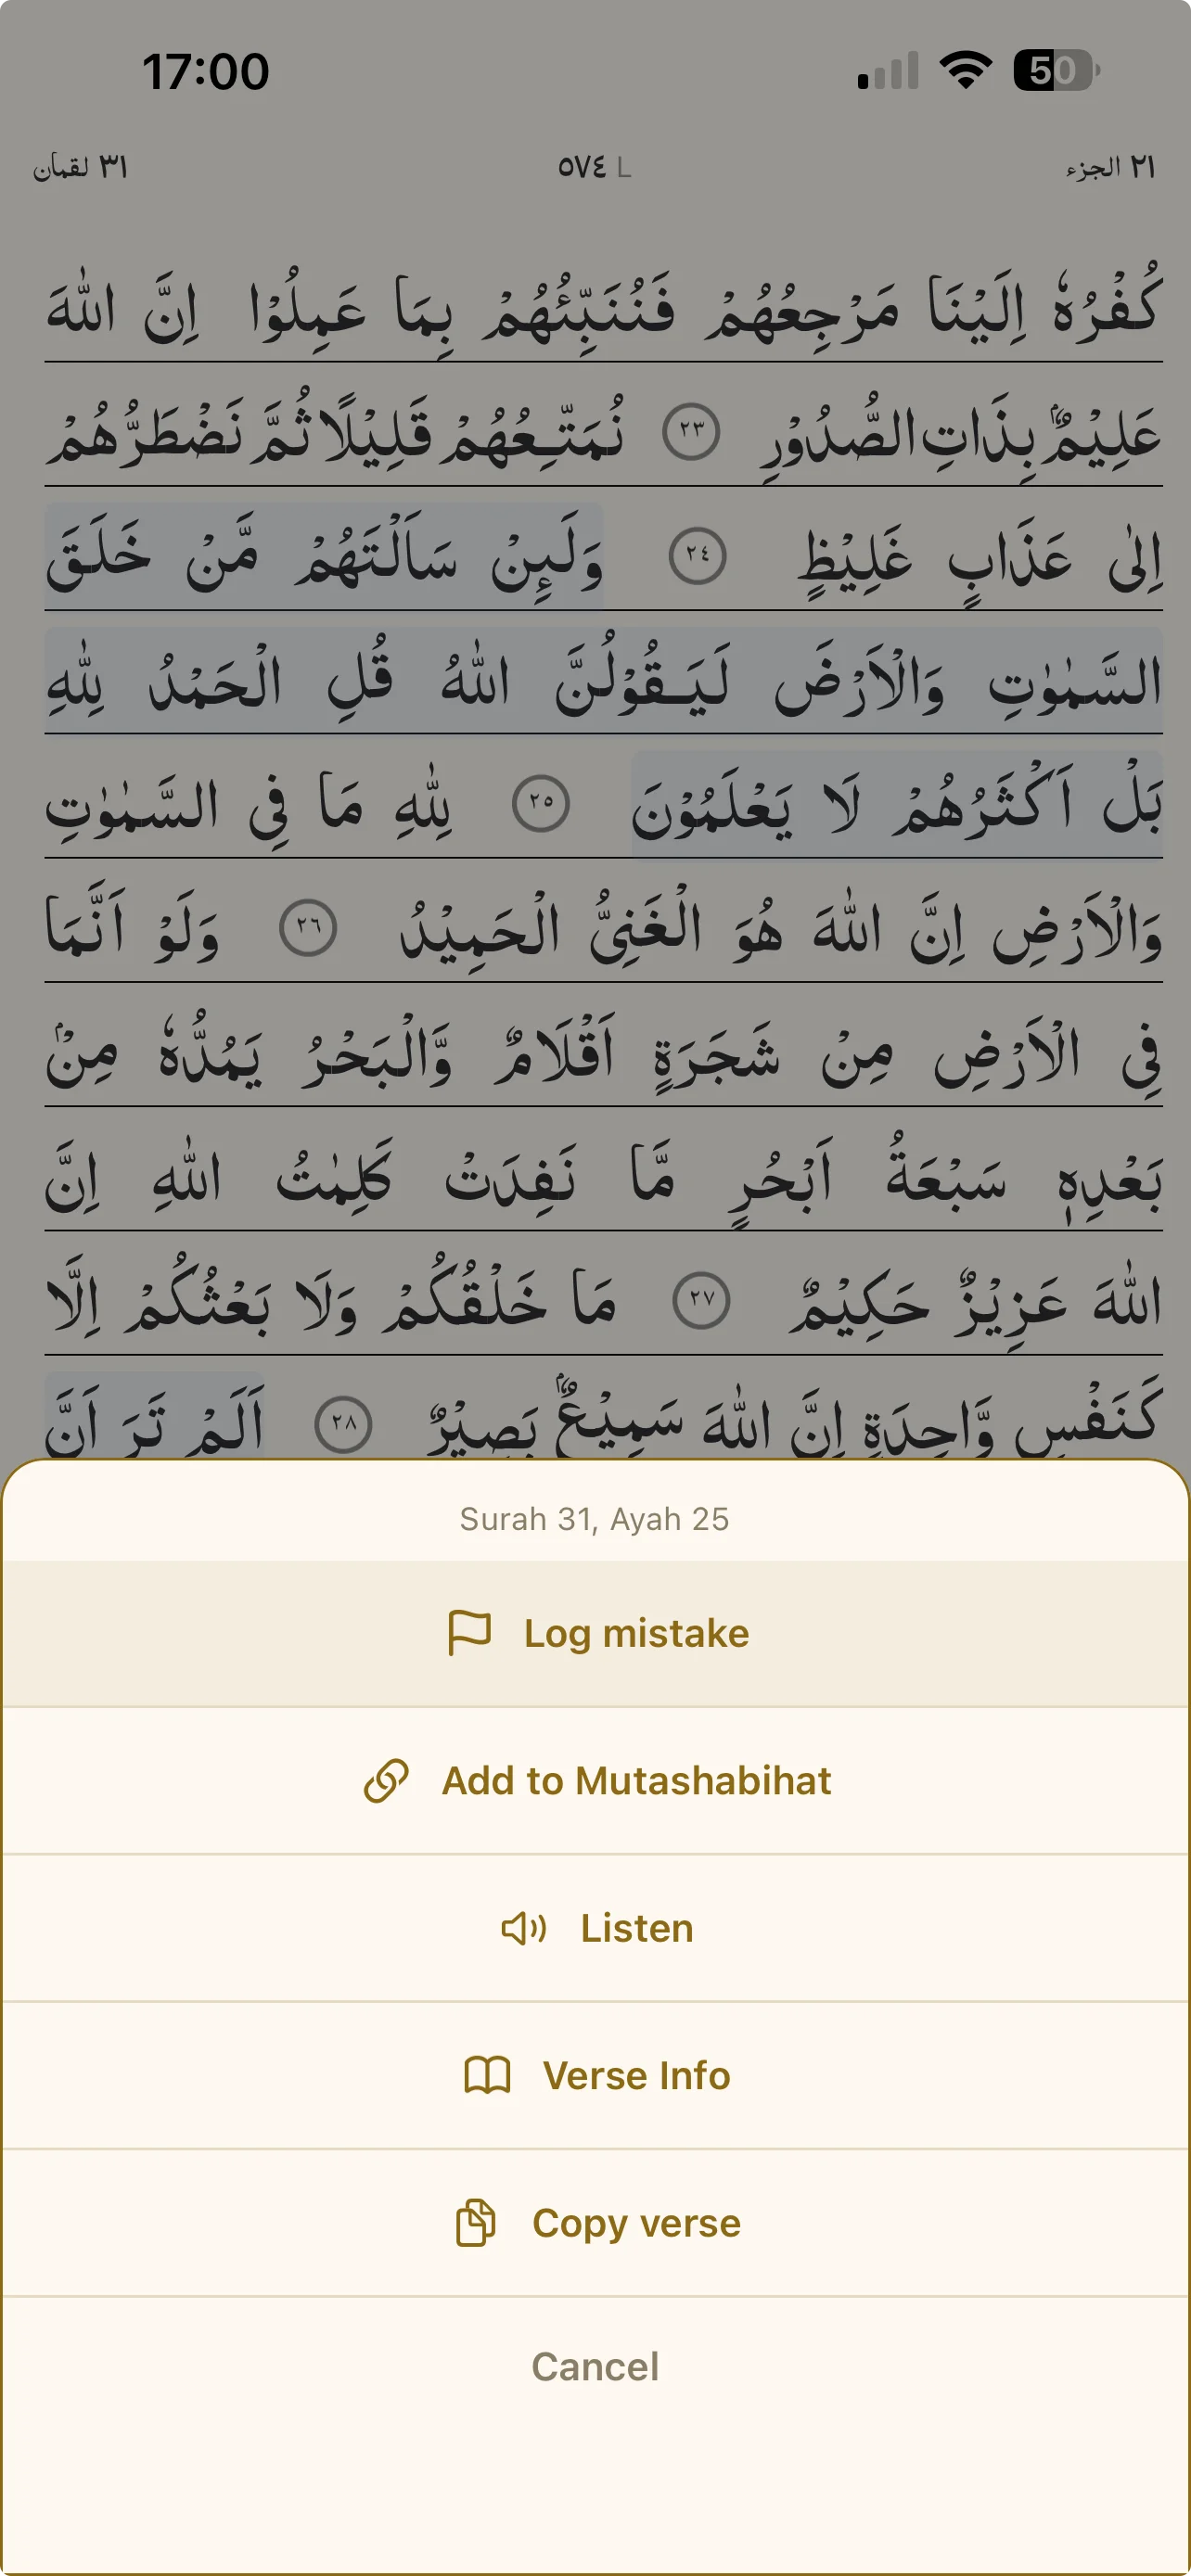 17:00
50
٣١ لقمان
٥٧٤ L
٢١ الجزء
كُفۡرُهٗ اِلَيۡنَا مَرۡجِعُهُمۡ فَنُنَبِّئُهُمۡ بِمَا عَمِلُوۡا اِنَّ اللّٰهَ
عَلِيۡمٌۢ بِذَاتِ الصُّدُوۡرِ ٢٣ نُمَتِّعُهُمۡ قَلِيۡلًا ثُمَّ نَضۡطَرُّهُمۡ
اِلٰى عَذَابٍ غَلِيۡظٍ ٢٤ وَلَٮِٕنۡ سَاَلۡتَهُمۡ مَّنۡ خَلَقَ
السَّمٰوٰتِ وَالۡاَرۡضَ لَيَـقُوۡلُنَّ اللّٰهُ قُلِ الۡحَمۡدُ لِلّٰهِ
بَلۡ اَكۡثَرُهُمۡ لَا يَعۡلَمُوۡنَ ٢٥ لِلّٰهِ مَا فِى السَّمٰوٰتِ
وَالۡاَرۡضِ اِنَّ اللّٰهَ هُوَ الۡغَنِىُّ الۡحَمِيۡدُ ٢٦ وَلَوۡ اَنَّمَا
فِى الۡاَرۡضِ مِنۡ شَجَرَةٍ اَقۡلَامٌ وَّالۡبَحۡرُ يَمُدُّهٗ مِنۡۢ
بَعۡدِهٖ سَبۡعَةُ اَبۡحُرٍ مَّا نَفِدَتۡ كَلِمٰتُ اللّٰهِ اِنَّ
اللّٰهَ عَزِيۡزٌ حَكِيۡمٌ ٢٧ مَا خَلۡقُكُمۡ وَلَا بَعۡثُكُمۡ اِلَّا
كَنَفۡسٍ وَّاحِدَةٍ اِنَّ اللّٰهَ سَمِيۡعٌۢ بَصِيۡرٌ ٢٨ اَلَمۡ تَرَ اَنَّ
Surah 31, Ayah 25
Log mistake
Add to Mutashabihat
Listen
Verse Info
Copy verse
Cancel